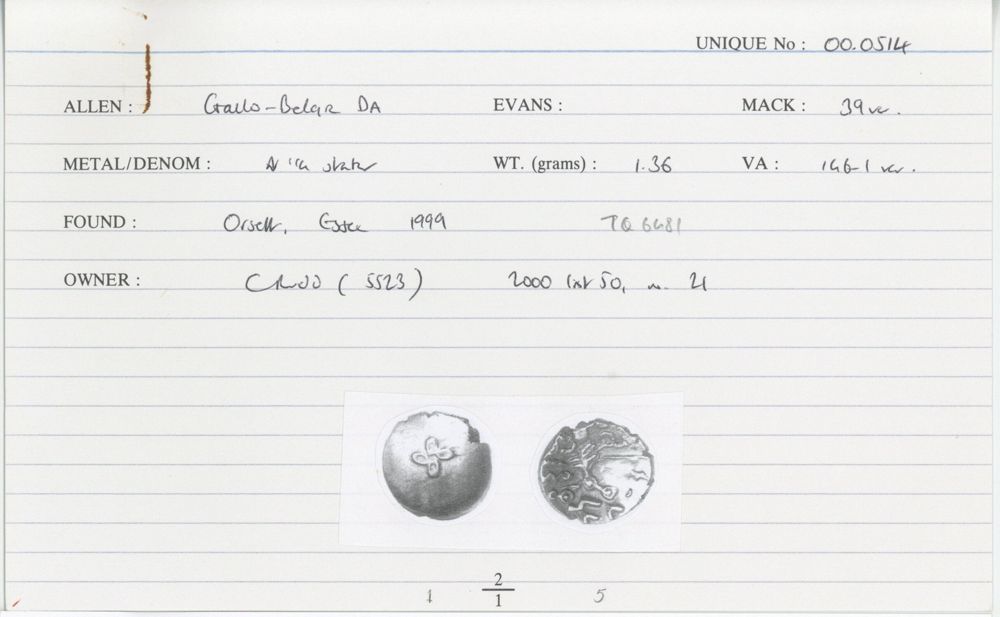 UNIQUE No : 00.0514
ALLEN : Gallo-Belgic DA EVANS : MACK : 39 var.
METAL/DENOM : AV 1/4 stater WT. (grams) : 1.36 VA : 146-1 var.
FOUND : Orsett, Essex 1999 TQ 6481
OWNER : CRUDD ( 5523 ) 2000 list 50, no. 21
1 2/1 5